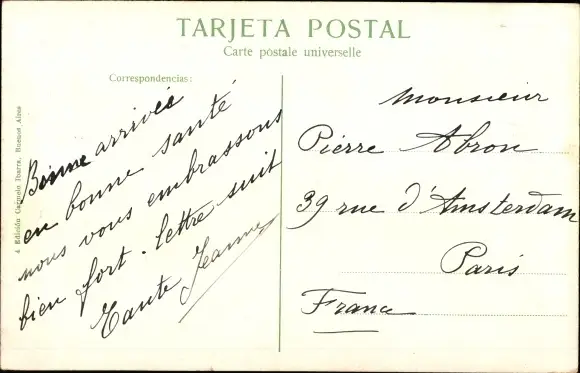 TARJETA POSTAL
Carte postale universelle
Correspondencias:
Bonne arrivée
en bonne santé
nous vous embrassons
bien fort. lettre suit
Tante Jeanne
Monsieur
Pierre Abron
39 rue d'Amsterdam
Paris
France
4 Edición Carmelo Ibarra, Buenos Aires